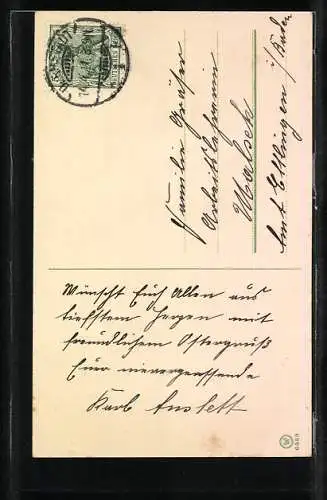 Familie Gräser
Arbeitslehrerin
Malsch
Amt Ettlingen i/Baden
Wünscht Euch Allen aus
tiefstem Herzen mit
freundlichem Ostergruß
Eure
Karl Anslett
6469